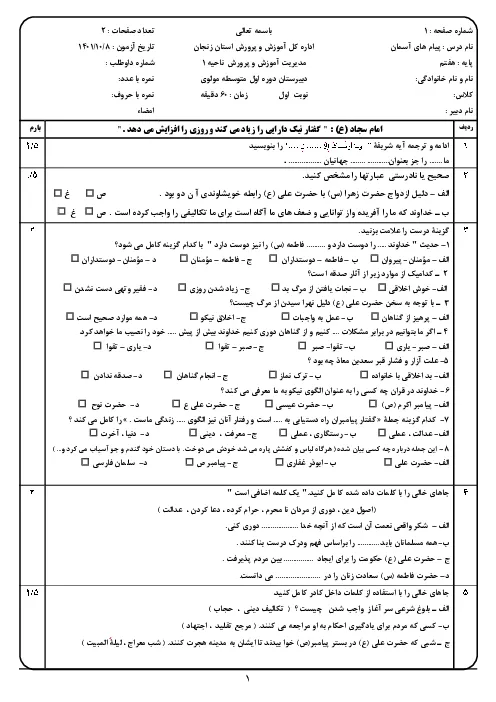 شماره صفحه : ۱
باسمه تعالی
تعداد صفحات : ۲
نام درس : پیام های آسمان
اداره کل آموزش و پرورش استان زنجان
تاریخ آزمون : ۱۴۰۱/۱۰/۸
پایه : هفتم
مدیریت آموزش و پرورش ناحیه ۱
شماره داوطلب :
نام و نام خانوادگی:
دبیرستان دوره اول متوسطه مولوی
نمره با عدد:
کلاس:
نوبت اول
زمان : ۶۰ دقیقه
نمره با حروف:
نام دبیر :
امضاء
ردیف
امام سجاد (ع) : " گفتار نیک دارایی را زیاد می کند و روزی را افزایش می دهد . "
بارم
۱
ادامه و ترجمه آیه شریفۀ را بنویسید
۱/۵
ما...... را جز بعنوان................ جهانیان ................ .
۲
صحیح یا نادرستی عبارتها را مشخص کنید.
الف - دلیل ازدواج حضرت زهرا (س) با حضرت علی (ع) رابطه خویشاوندی آن دو بود . ص □ غ □
ب - خداوند که ما را آفریده و از توانایی و ضعف های ما آگاه است برای ما تکالیفی را واجب کرده است . ص □ غ □
۳
گزینۀ درست را علامت بزنید.
۱- حدیث " خداوند .... را دوست دارد و ......... فاطمه (س) را نیز دوست دارد " با کدام گزینه کامل می شود؟
الف - مؤمنان- پیروان □ ب – فاطمه - دوستداران □ ج - فاطمه – مؤمنان □ د - مؤمنان- دوستداران □
۲ - کدامیک از موارد زیر از آثار صدقه است؟
الف- خوش اخلاقی □ ب - نجات یافتن از مرگ بد □ ج- زیاد شدن روزی □ د- فقیر و تهی دست نشدن □
۳ - با توجه به سخن حضرت علی (ع) دلیل نهراسیدن از مرگ چیست؟
الف- پرهیز از گناهان □ ب- عمل به واجبات □ ج- اخلاق نیکو □ د- همه موارد صحیح است □
۴ - اگر ما بتوانیم در برابر مشکلات .... کنیم و از گناهان دوری کنیم خداوند بیش از پیش .... خود را نصیب ما خواهد کرد.
الف - صبر - یاری □ ب- تقوا- صبر □ ج -صبر – تقوا □ د- یاری – تقوا □
۵- علت آزار و فشار قبر سعد بن معاذ چه بود ؟
الف- بد اخلاقی با خانواده □ ب - ترک نماز □ ج - انجام گناهان □ د- صدقه ندادن □
۶- خداوند در قرآن چه کسی را به عنوان الگوی نیکو به ما معرفی می کند ؟
الف- پیامبر اکرم (ص) □ ب- حضرت عیسی □ ج - حضرت علی ع □ د- حضرت نوح □
۷- کدام گزینه جملۀ « گفتار پیامبران راه دستیابی به .... است و رفتار آنان نیز الگوی .... زندگی ماست . » را کامل می کند ؟
الف- عدالت ، عملی □ ب - رستگاری ، عملی □ ج - معرفت ، دینی □ د - دنیا ، آخرت □
۸ - این جمله درباره چه کسی بیان شده ( هرگاه لباس و کفشش پاره می شد خودش می دوخت. با دستان خود گندم و جو آسیاب می کرد و.. )
الف- حضرت علی □ ب- ابوذر غفاری □ ج - پیامبر ص □ د- سلمان فارسی □
۴
جاهای خالی را با کلمات داده شده کامل کنید. " یک کلمه اضافی است "
۲
( اصول دین ، دوری از مردان نا محرم ، حرام کرده ، دعا کردن ، عدالت )
الف - شکر واقعی نعمت آن است که از آنچه خدا .................. دوری کنی.
ب- همه مسلمانان باید............ را براساس فهم و درک درست بنا کنند .
ج - حضرت علی (ع) حکومت را برای ایجاد ............... بین مردم پذیرفت .
د- حضرت فاطمه (س) سعادت زنان را در ...................... می دانست.
۵
جاهای خالی را با استفاده از کلمات داخل کادر کامل کنید.
۱/۵
الف - بلوغ شرعی سر آغاز واجب شدن چیست ؟ ( تکالیف دینی ، حجاب )
ب- کسی که مردم برای یادگیری احکام به او مراجعه می کنند. ( مرجع تقلید ، اجتهاد )
ج - شبی که حضرت علی (ع) در بستر پیامبر(ص) خوابیدند تا ایشان به مدینه هجرت کنند. ( شب معراج ، لیلة المبیت )
۱